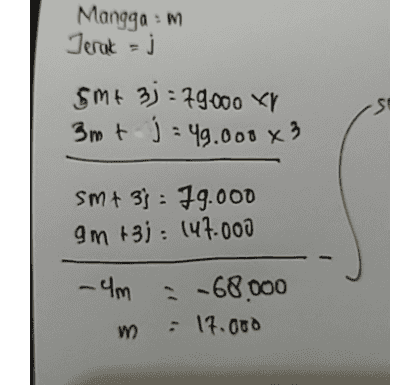 Mangga = m
Jeruk = j
5m + 3j = 79.000 x1
3m + j = 49.000 x 3
5m + 3j = 79.000
9m + 3j = 147.000
-
-4m = -68.000
m = 17.000